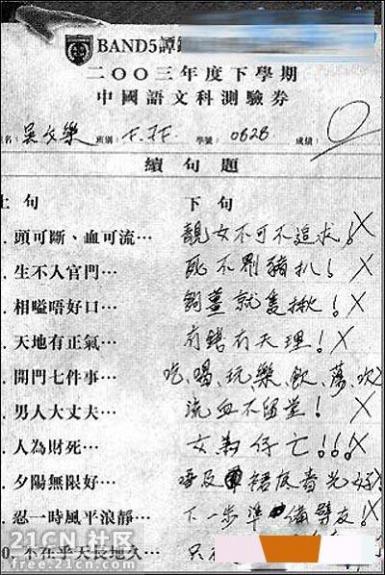 BAND5譚
二〇〇三年度下學期
中國語文科測驗券
姓名：吳文樂 班別：F.5F. 學號：0628 成績：0
續句題
上句 下句
頭可斷、血可流… 靚女不可不追求！X
生不入官門… 死不劏豬扒！X
相嗌唔好口… 就隻揪！X
天地有正氣… 有錢有天理！X
開門七件事… 吃、喝、玩、樂、飲、蕩、吹
男人大丈夫… 流血不留堂！X
人為財死… 女為仔亡！！X
夕陽無限好… 裙底春光好
忍一時風平浪靜… 下一步準備劈友！X
10. 不在乎天長地久… 只
21CN 社区
free.21cn.com